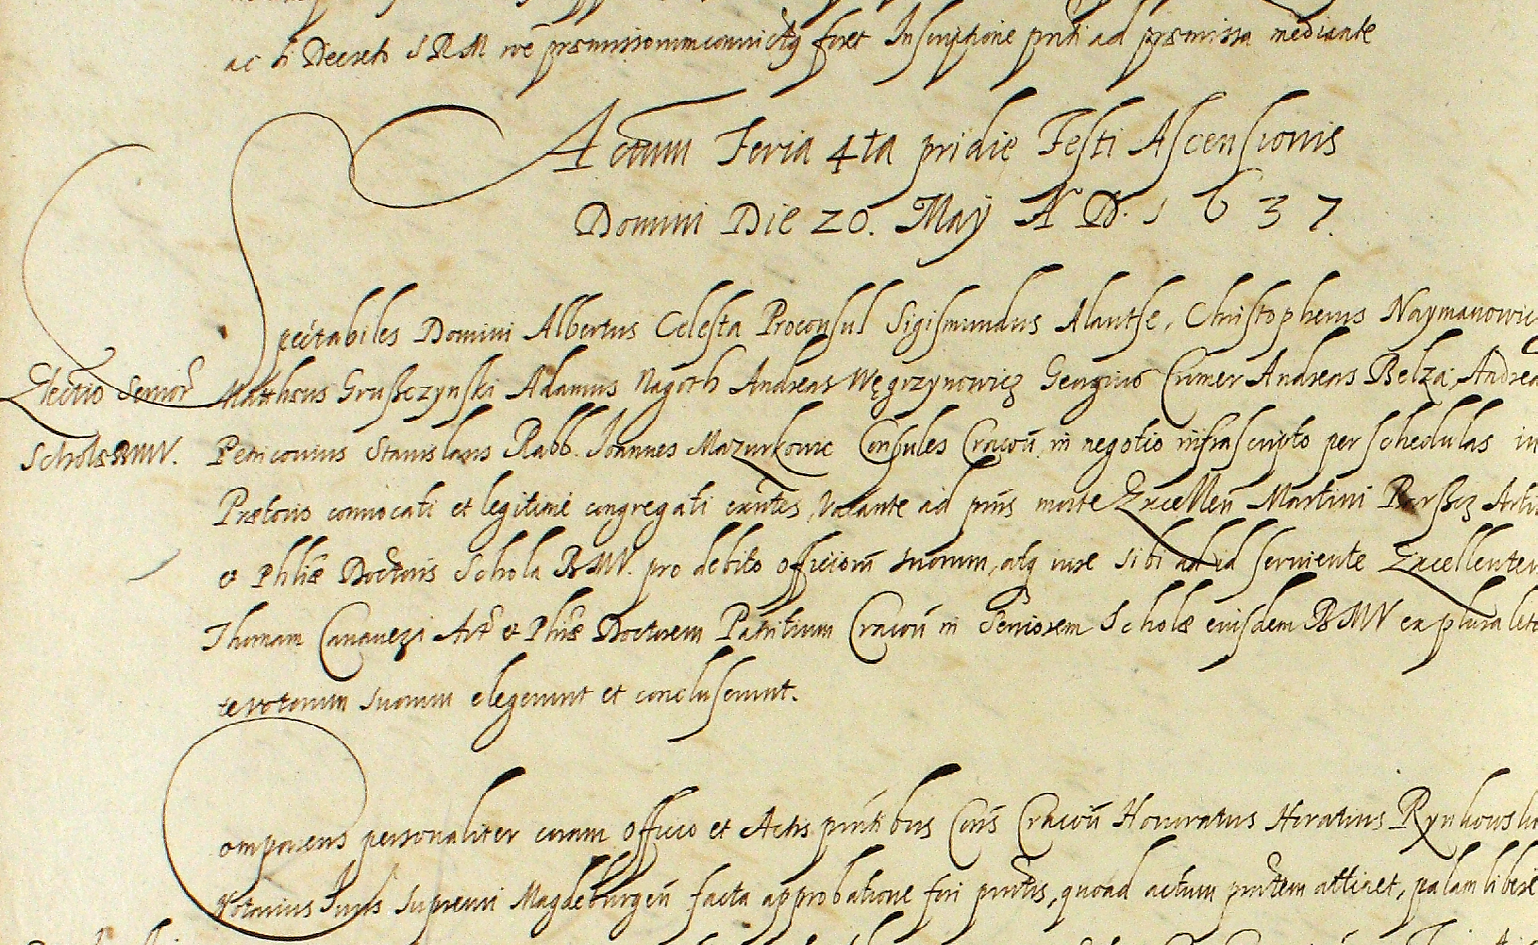 ac ti Decreto S R M roe præmissorum convictus foret Inscriptione pnti ad præmissa mediante
Actum Feria 4ta pridie Festi Ascensionis
Domini Die 20. Maÿ A D. 1637.
Spectabiles Domini Albertus Celesta Proconsul Sigismundus Alantse, Christophorus Naymanowicz
Electio Senior Mattheus Grusczynski Adamus Nagoth Andreas Węgrzynowicz Georgius Cromer Andreas Belza, Andrea
Scholæ BMV. Petricovius Stanislaus Rabb. Joannes Mazurkowic Consules Cracoū. in negotio infrascripto per schedulas in
Prætorio convocati et legitimè congregati exntes, Vacante ad pns morte Excellen Martini Artiu
et Phliæ Doctoris Schola BMV. pro debito officiorū suorum, atq iure sibi ad id serviente Excellentem
Thomam Canavezi Art et Phiæ Doctorem Patritium Cracoū in Seniorem Scholæ eiusdem BMV ex pluralita
te votorum suorum elegerunt et concluserunt.
Comparens personaliter coram Officio et Actis pntibus Cons Cracoū Honoratus Horatius
Notarius Juris Supremi Magdeburgeñ facta approbatione fori pntis, quoad actum pntem attinet, palam libere